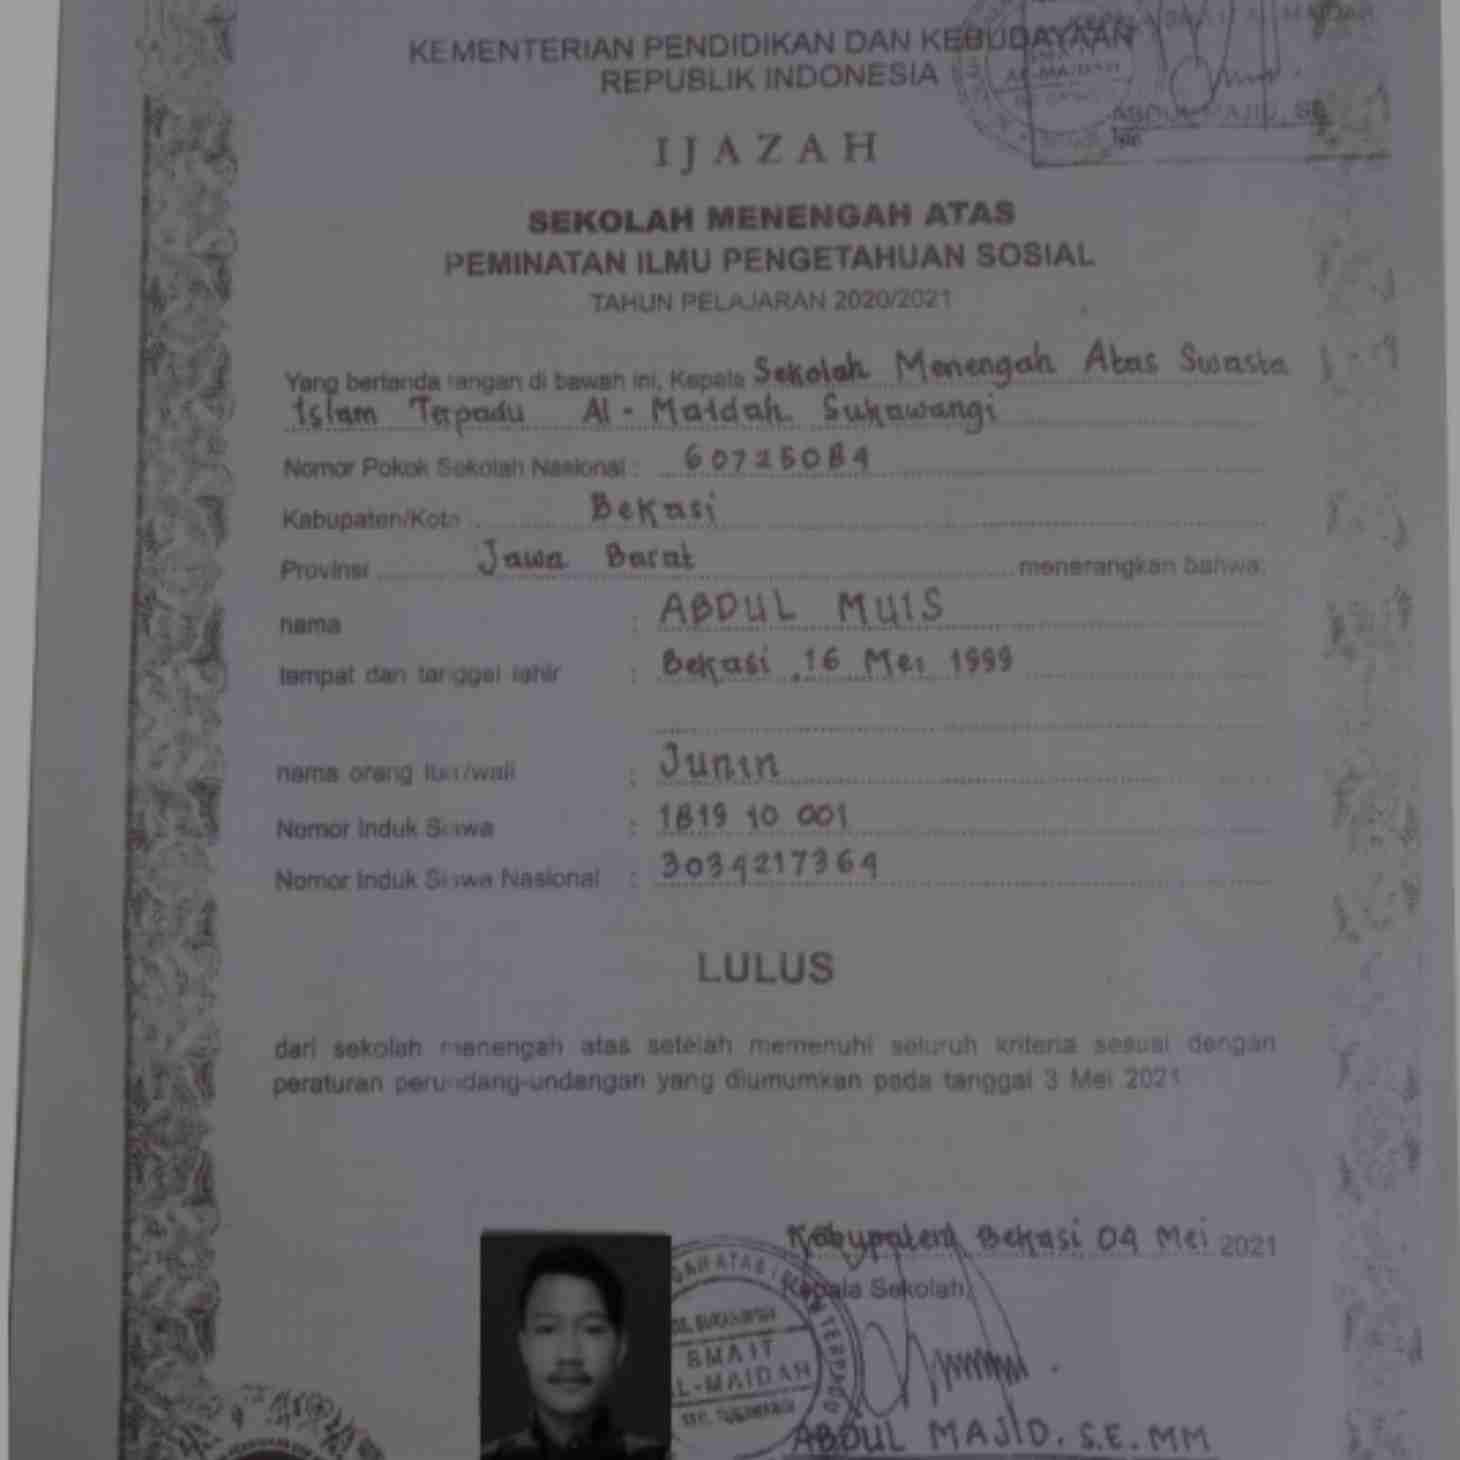 KEMENTERIAN PENDIDIKAN DAN KEBUDAYAAN
REPUBLIK INDONESIA
AL-MAIDAH
ABDUL MAJID, SE
IJAZAH
SEKOLAH MENENGAH ATAS
PEMINATAN ILMU PENGETAHUAN SOSIAL
TAHUN PELAJARAN 2020/2021
Yang bertanda tangan di bawah ini, Kepala Sekolah Menengah Atas Swasta
Islam Terpadu Al-Maidah Sukawangi
Nomor Pokok Sekolah Nasional : 60725084
Kabupaten/Kota Bekasi
Provinsi Jawa Barat menerangkan bahwa:
nama : ABDUL MUIS
tempat dan tanggal lahir : Bekasi, 16 Mei 1999
nama orang tua/wali : Junin
Nomor Induk Siswa : 1819 10 001
Nomor Induk Siswa Nasional : 3034217364
LULUS
dari sekolah menengah atas setelah memenuhi seluruh kriteria sesuai dengan
peraturan perundang-undangan yang diumumkan pada tanggal 3 Mei 2021
Kabupaten Bekasi 04 Mei 2021
Kepala Sekolah,
SMA IT
AL-MAIDAH
KEC. SUKAWANGI
ABDUL MAJID. S.E. MM